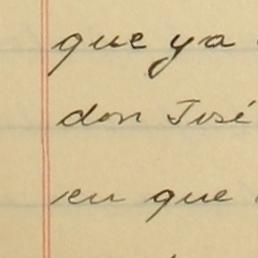 que ya
don José
en que